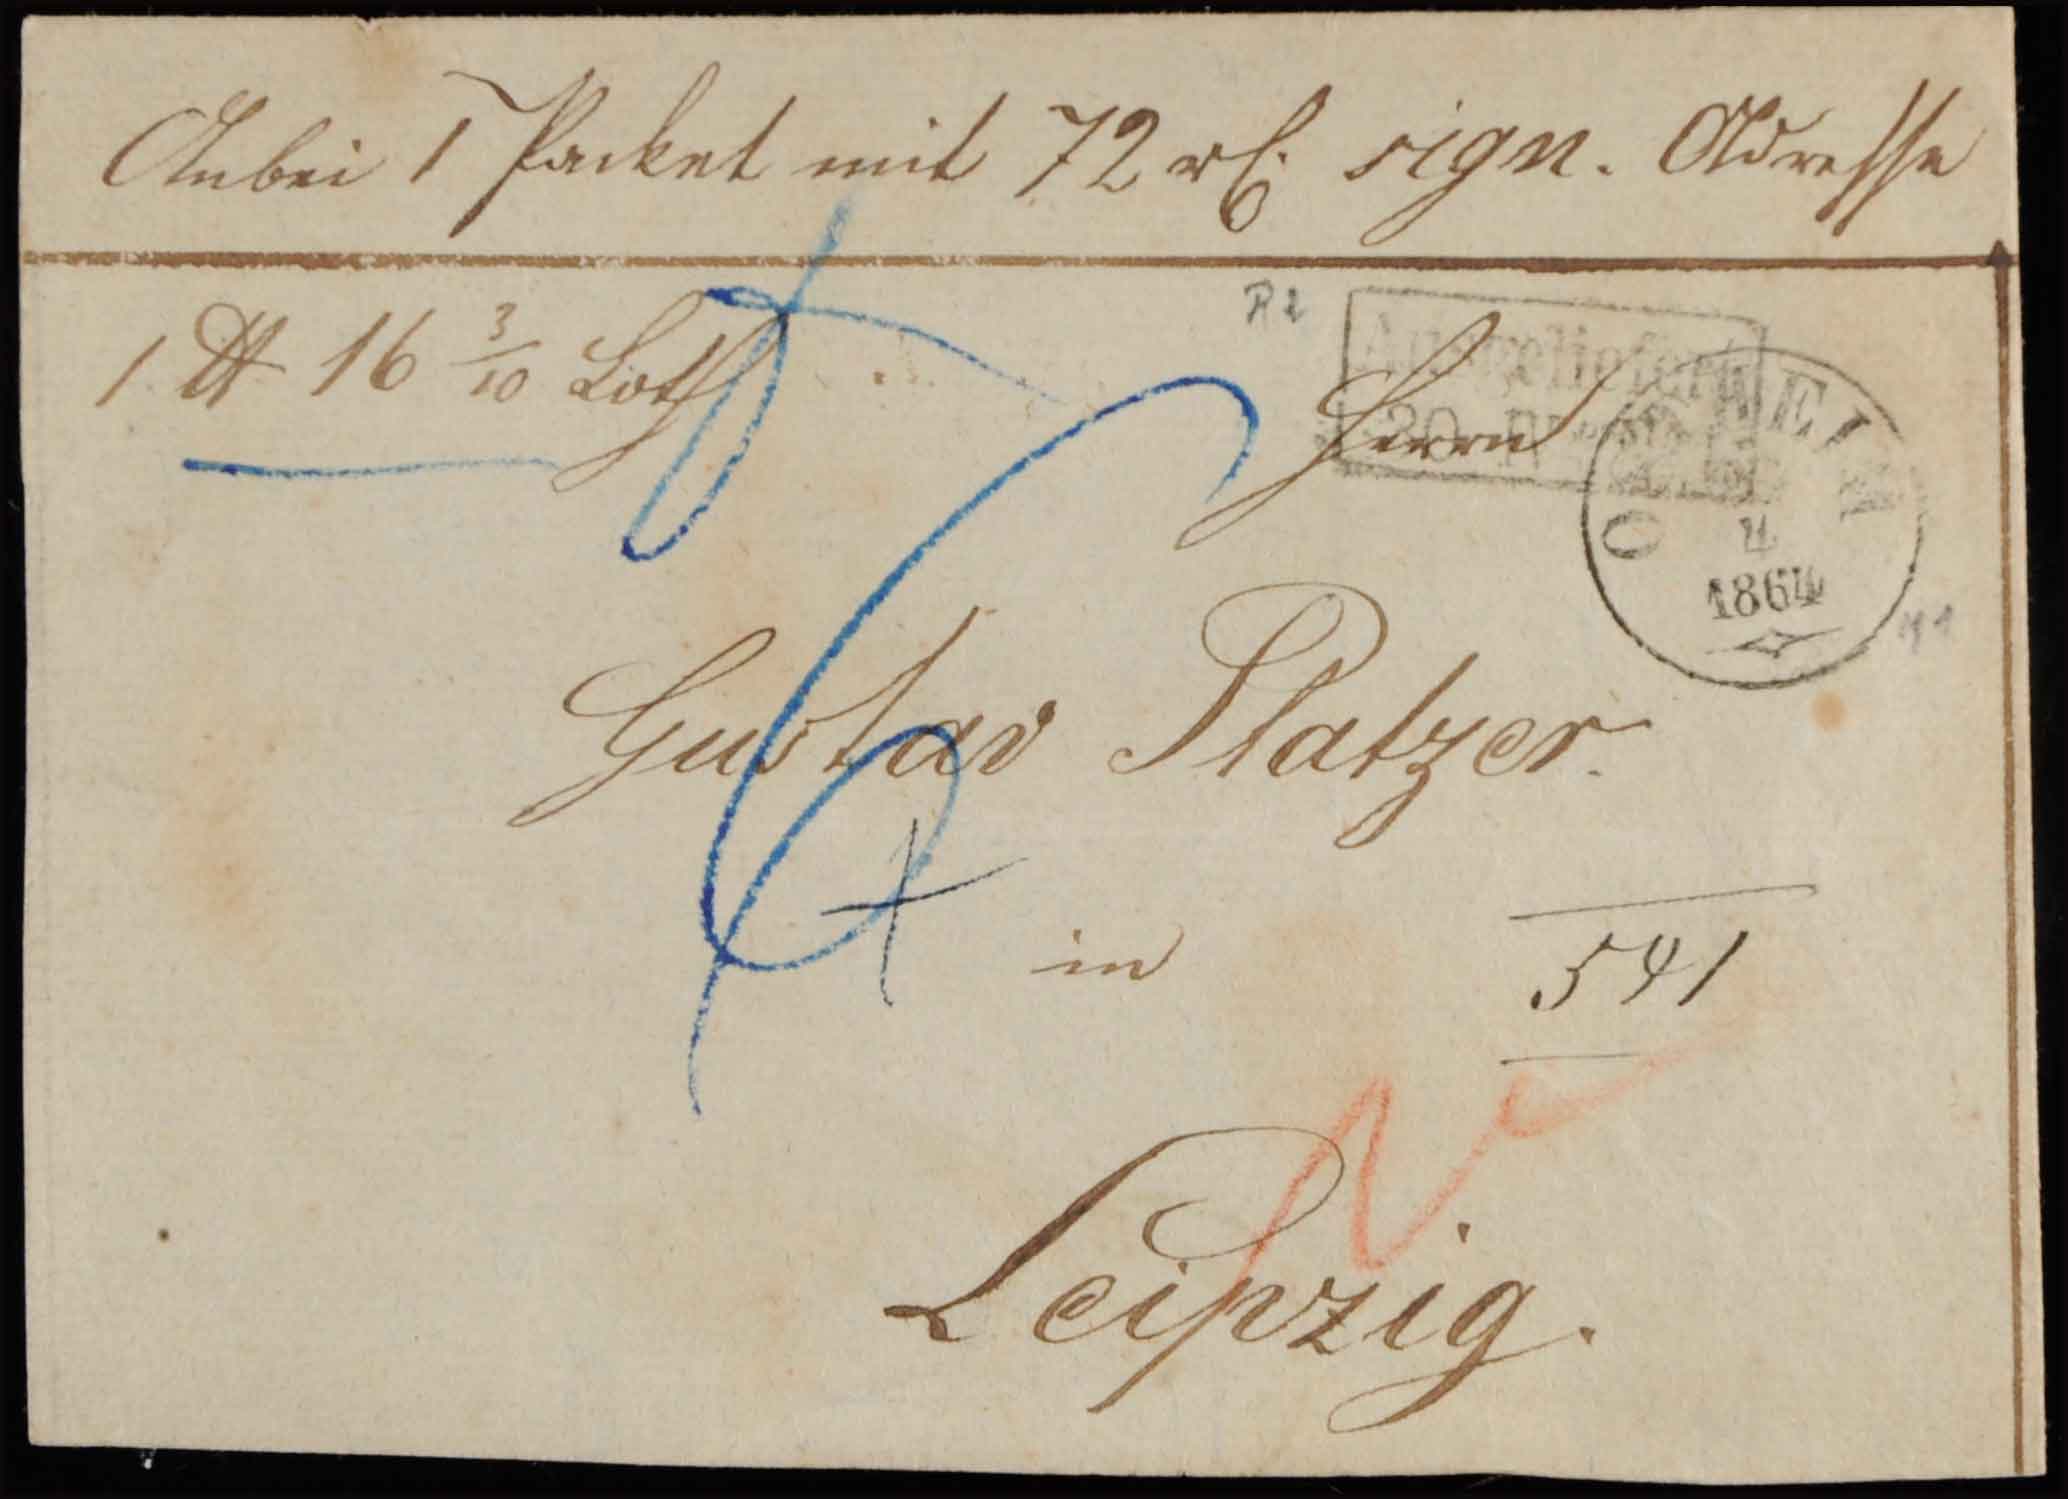 Anbei 1 Packet mit 72 rℓ. sign. Adresse
1 ℔ 16 3/10 Loth
Ausgeliefert
Herrn
4
1864
Gustav Platzer.
in
541
Leipzig.